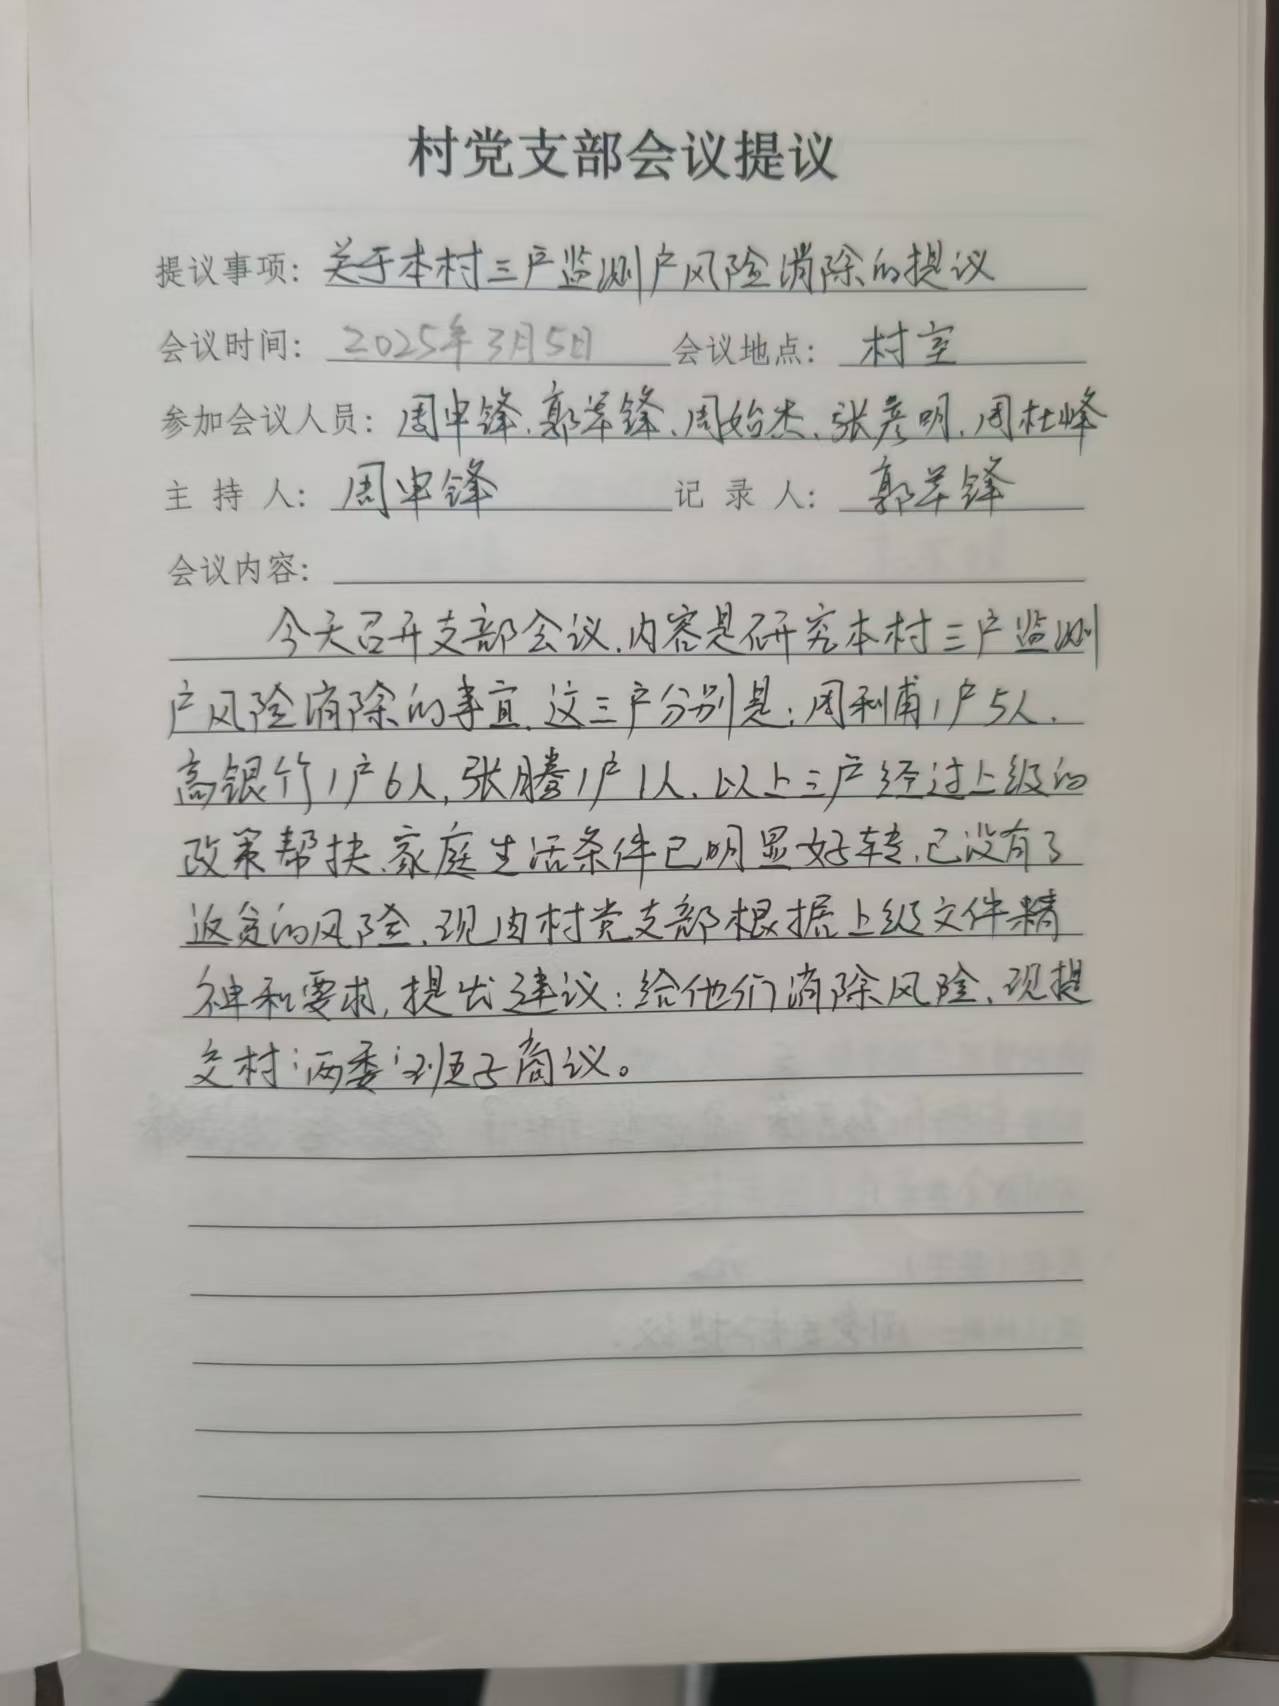 村党支部会议提议
提议事项：关于本村三户监测户风险消除的提议
会议时间：2025年3月5日 会议地点：村室
参加会议人员：周申锋、郭军锋、周始杰、张彦明、周杜峰
主持人：周申锋 记录人：郭军锋
会议内容：
今天召开支部会议，内容是研究本村三户监测
户风险消除的事宜，这三户分别是：周利甫1户5人，
高银竹1户6人，张腾1户1人，以上三户经过上级的
政策帮扶，家庭生活条件已明显好转，已没有了
返贫的风险，现由村党支部根据上级文件精
神和要求，提出建议：给他们消除风险，现提
交村“两委”班子商议。